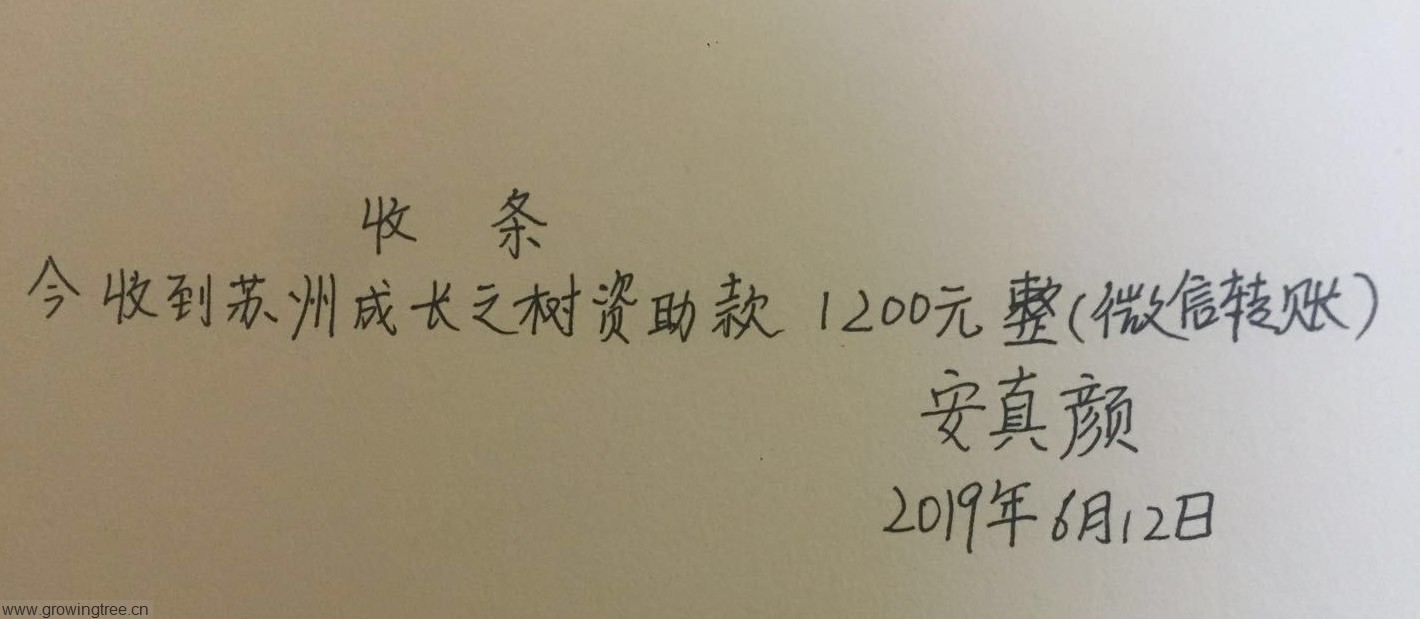 收 条
今收到苏州成长之树资助款 1200元整(微信转账)
安真颜
2019年6月12日
www.growingtree.cn